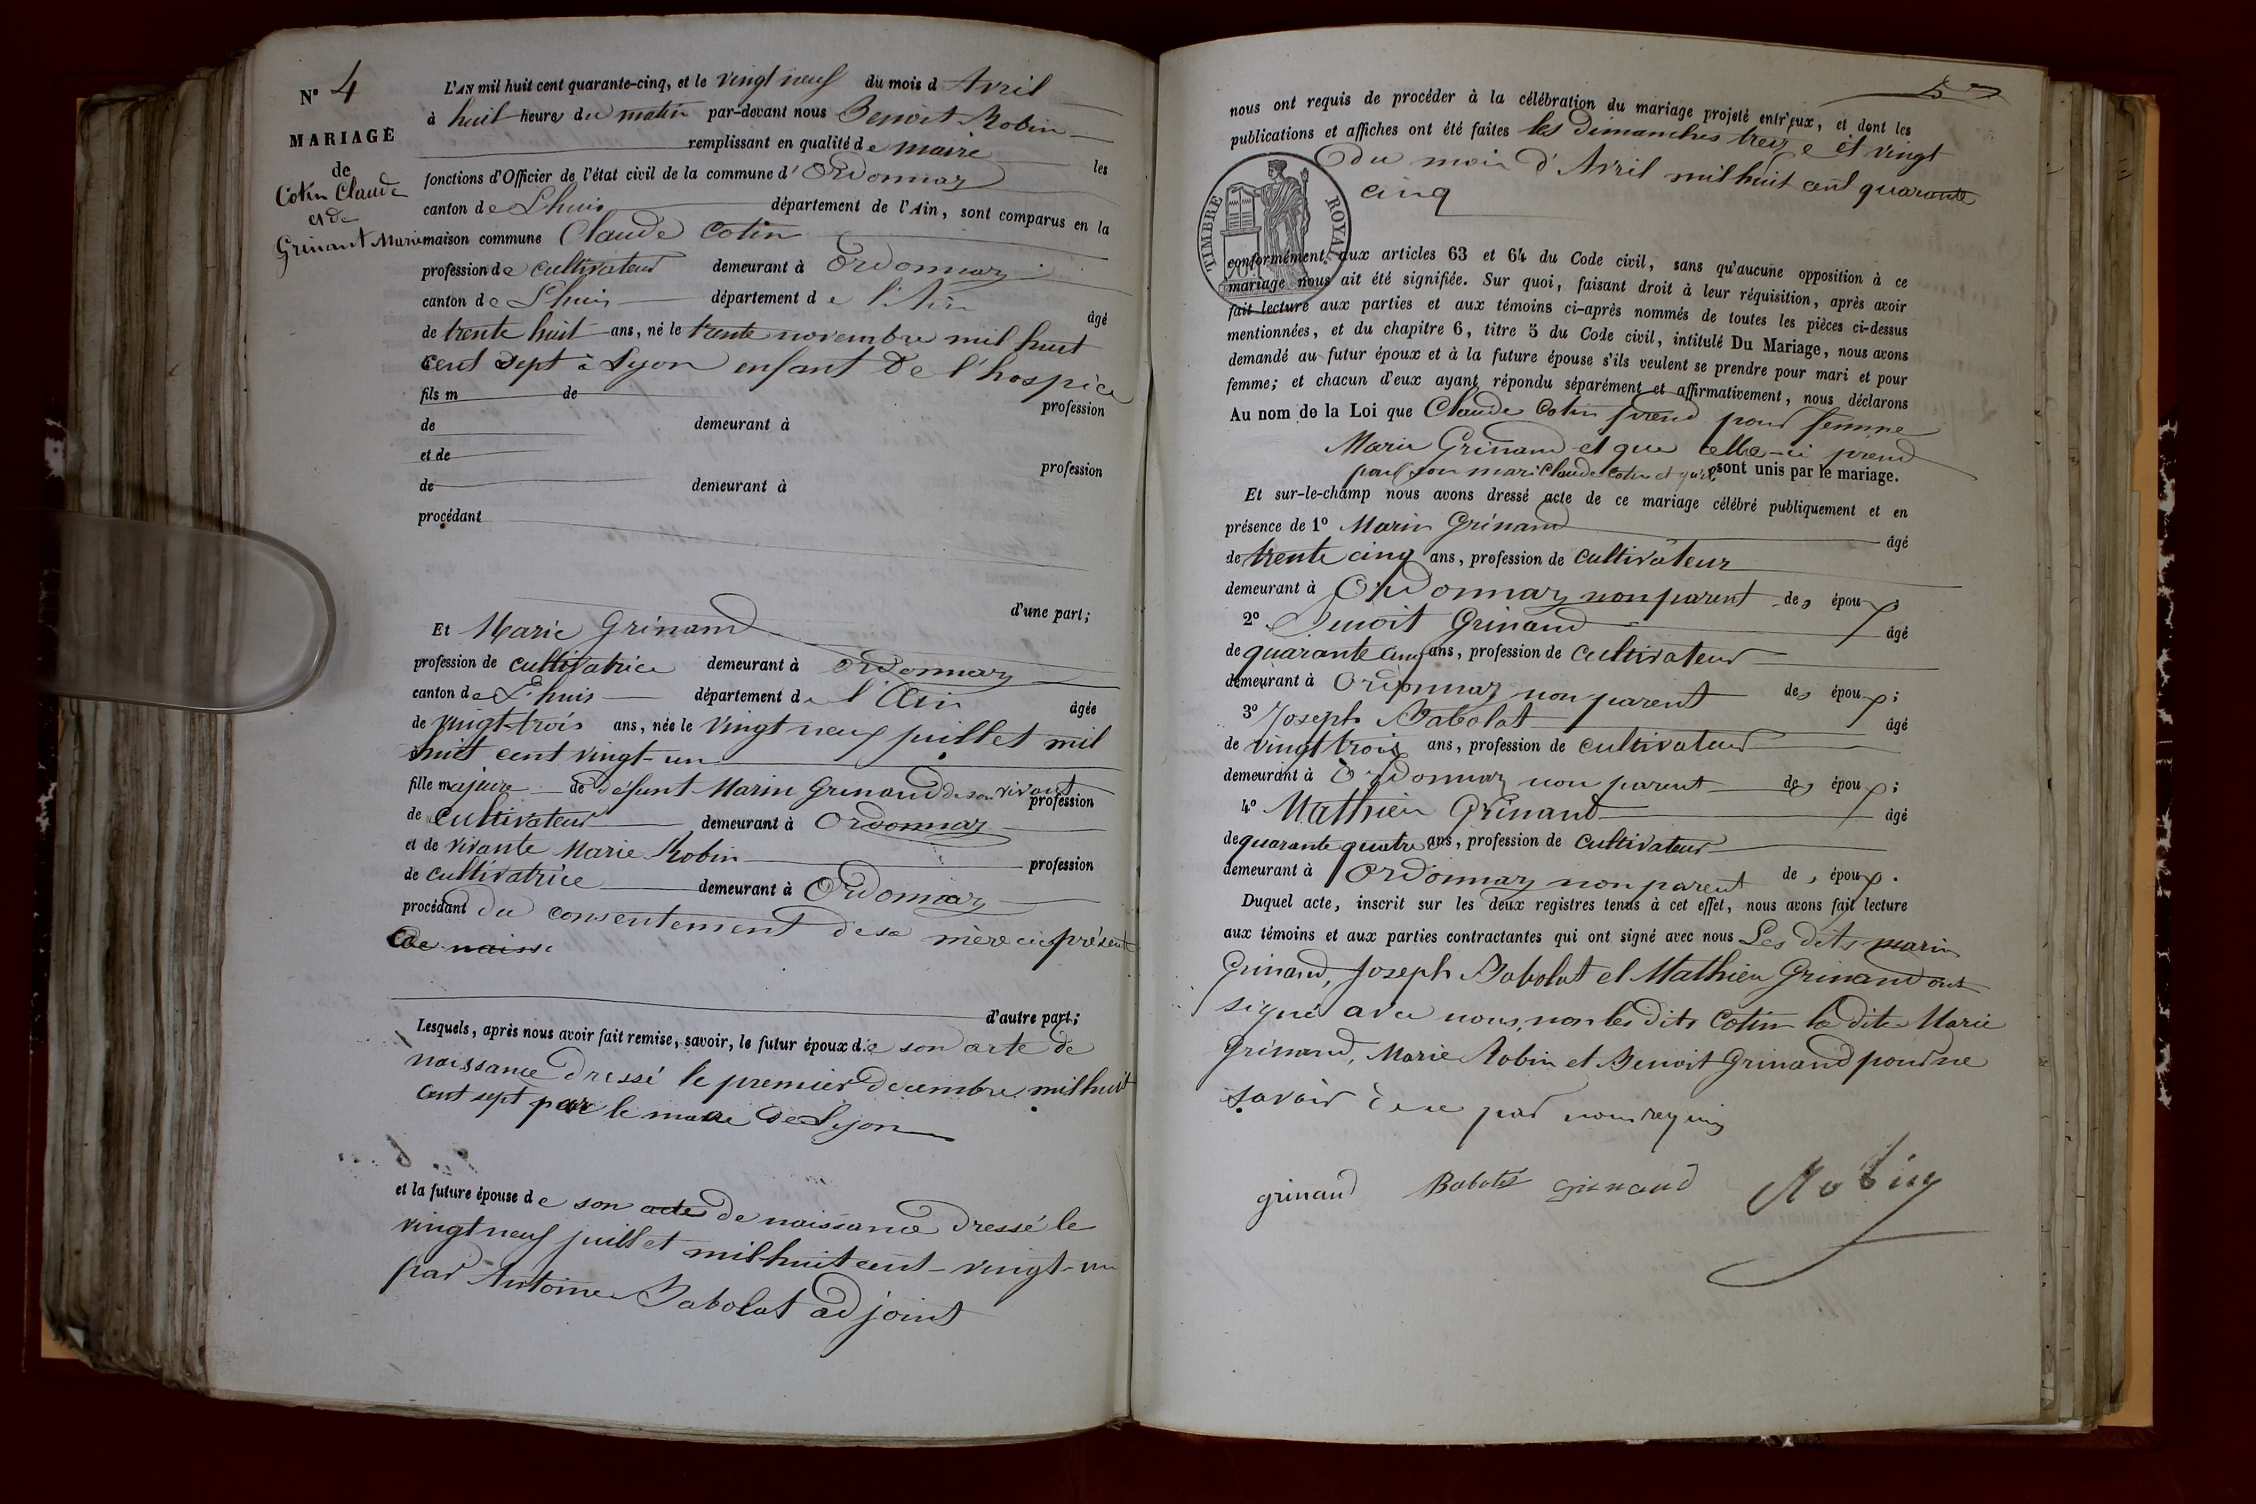 N° 4
MARIAGE
de
Cotin Claude
et de
Grinant Marie
L'AN mil huit cent quarante-cinq, et le vingt neuf du mois d Avril
à huit heures du matin par-devant nous Benoit Robin
remplissant en qualité de maire les
fonctions d'Officier de l'état civil de la commune d' Ordonnaz
canton de Lhuis département de l'Ain, sont comparus en la
maison commune Claude Cotin
profession de cultivateur demeurant à Ordonnaz
canton de Lhuis département de l'Ain âgé
de trente huit ans, né le trente novembre mil huit
cent sept à Lyon enfant de l'hospice
fils m de profession
de demeurant à
et de profession
de demeurant à
procédant
d'une part;
Et Marie Grinand
profession de cultivatrice demeurant à Ordonnaz
canton de Lhuis département de l'Ain âgée
de vingt-trois ans, née le vingt neuf juillet mil
huit cent vingt-un
fille majeure de défunt Marin Grinand de son vivant profession
de cultivateur demeurant à Ordonnaz
et de vivante Marie Robin profession
de cultivatrice demeurant à Ordonnaz
procédant du consentement de sa mère ici présente
de naiss
d'autre part;
Lesquels, après nous avoir fait remise, savoir, le futur époux de son acte de
naissance dressé le premier decembre mil huit
cent sept par le maire de Lyon
et la future épouse de son acte de naissance dressé le
vingt neuf juillet mil huit cent-vingt-un
par Antoine Babolat adjoint
5
nous ont requis de procéder à la célébration du mariage projeté entr'eux, et dont les
publications et affiches ont été faites les dimanches treize et vingt
du mois d'Avril mil huit cent quarante
cinq
TIMBRE ROYAL
conformément aux articles 63 et 64 du Code civil, sans qu'aucune opposition à ce
mariage nous ait été signifiée. Sur quoi, faisant droit à leur réquisition, après avoir
fait lecture aux parties et aux témoins ci-après nommés de toutes les pièces ci-dessus
mentionnées, et du chapitre 6, titre 5 du Code civil, intitulé Du Mariage, nous avons
demandé au futur époux et à la future épouse s'ils veulent se prendre pour mari et pour
femme; et chacun d'eux ayant répondu séparément et affirmativement, nous déclarons
Au nom de la Loi que Claude Cotin prend pour femme
Marie Grinand et que celle-ci prend
pour son mari Claude Cotin et qu'ils sont unis par le mariage.
Et sur-le-champ nous avons dressé acte de ce mariage célébré publiquement et en
présence de 1° Marin Grinand âgé
de trente cinq ans, profession de cultivateur
demeurant à Ordonnaz non parent des époux;
2° Benoit Grinand âgé
de quarante cinq ans, profession de cultivateur
demeurant à Ordonnaz non parent des époux;
3° Joseph Babolat âgé
de vingt trois ans, profession de cultivateur
demeurant à Ordonnaz non parent des époux;
4° Mathieu Grinand âgé
de quarante quatre ans, profession de cultivateur
demeurant à Ordonnaz non parent des époux.
Duquel acte, inscrit sur les deux registres tenus à cet effet, nous avons fait lecture
aux témoins et aux parties contractantes qui ont signé avec nous Les dits marin
Grinand, Joseph Babolat et Mathieu Grinand ont
signé avec nous, non les dits Cotin la dite Marie
Grinand, Marie Robin et Benoit Grinand pour ne
savoir de ce par nous requis
grinand Babolat grinand Robin